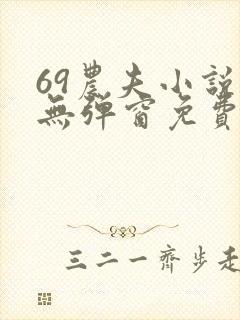 69農夫小說
無彈窗免費
三二一齊步走